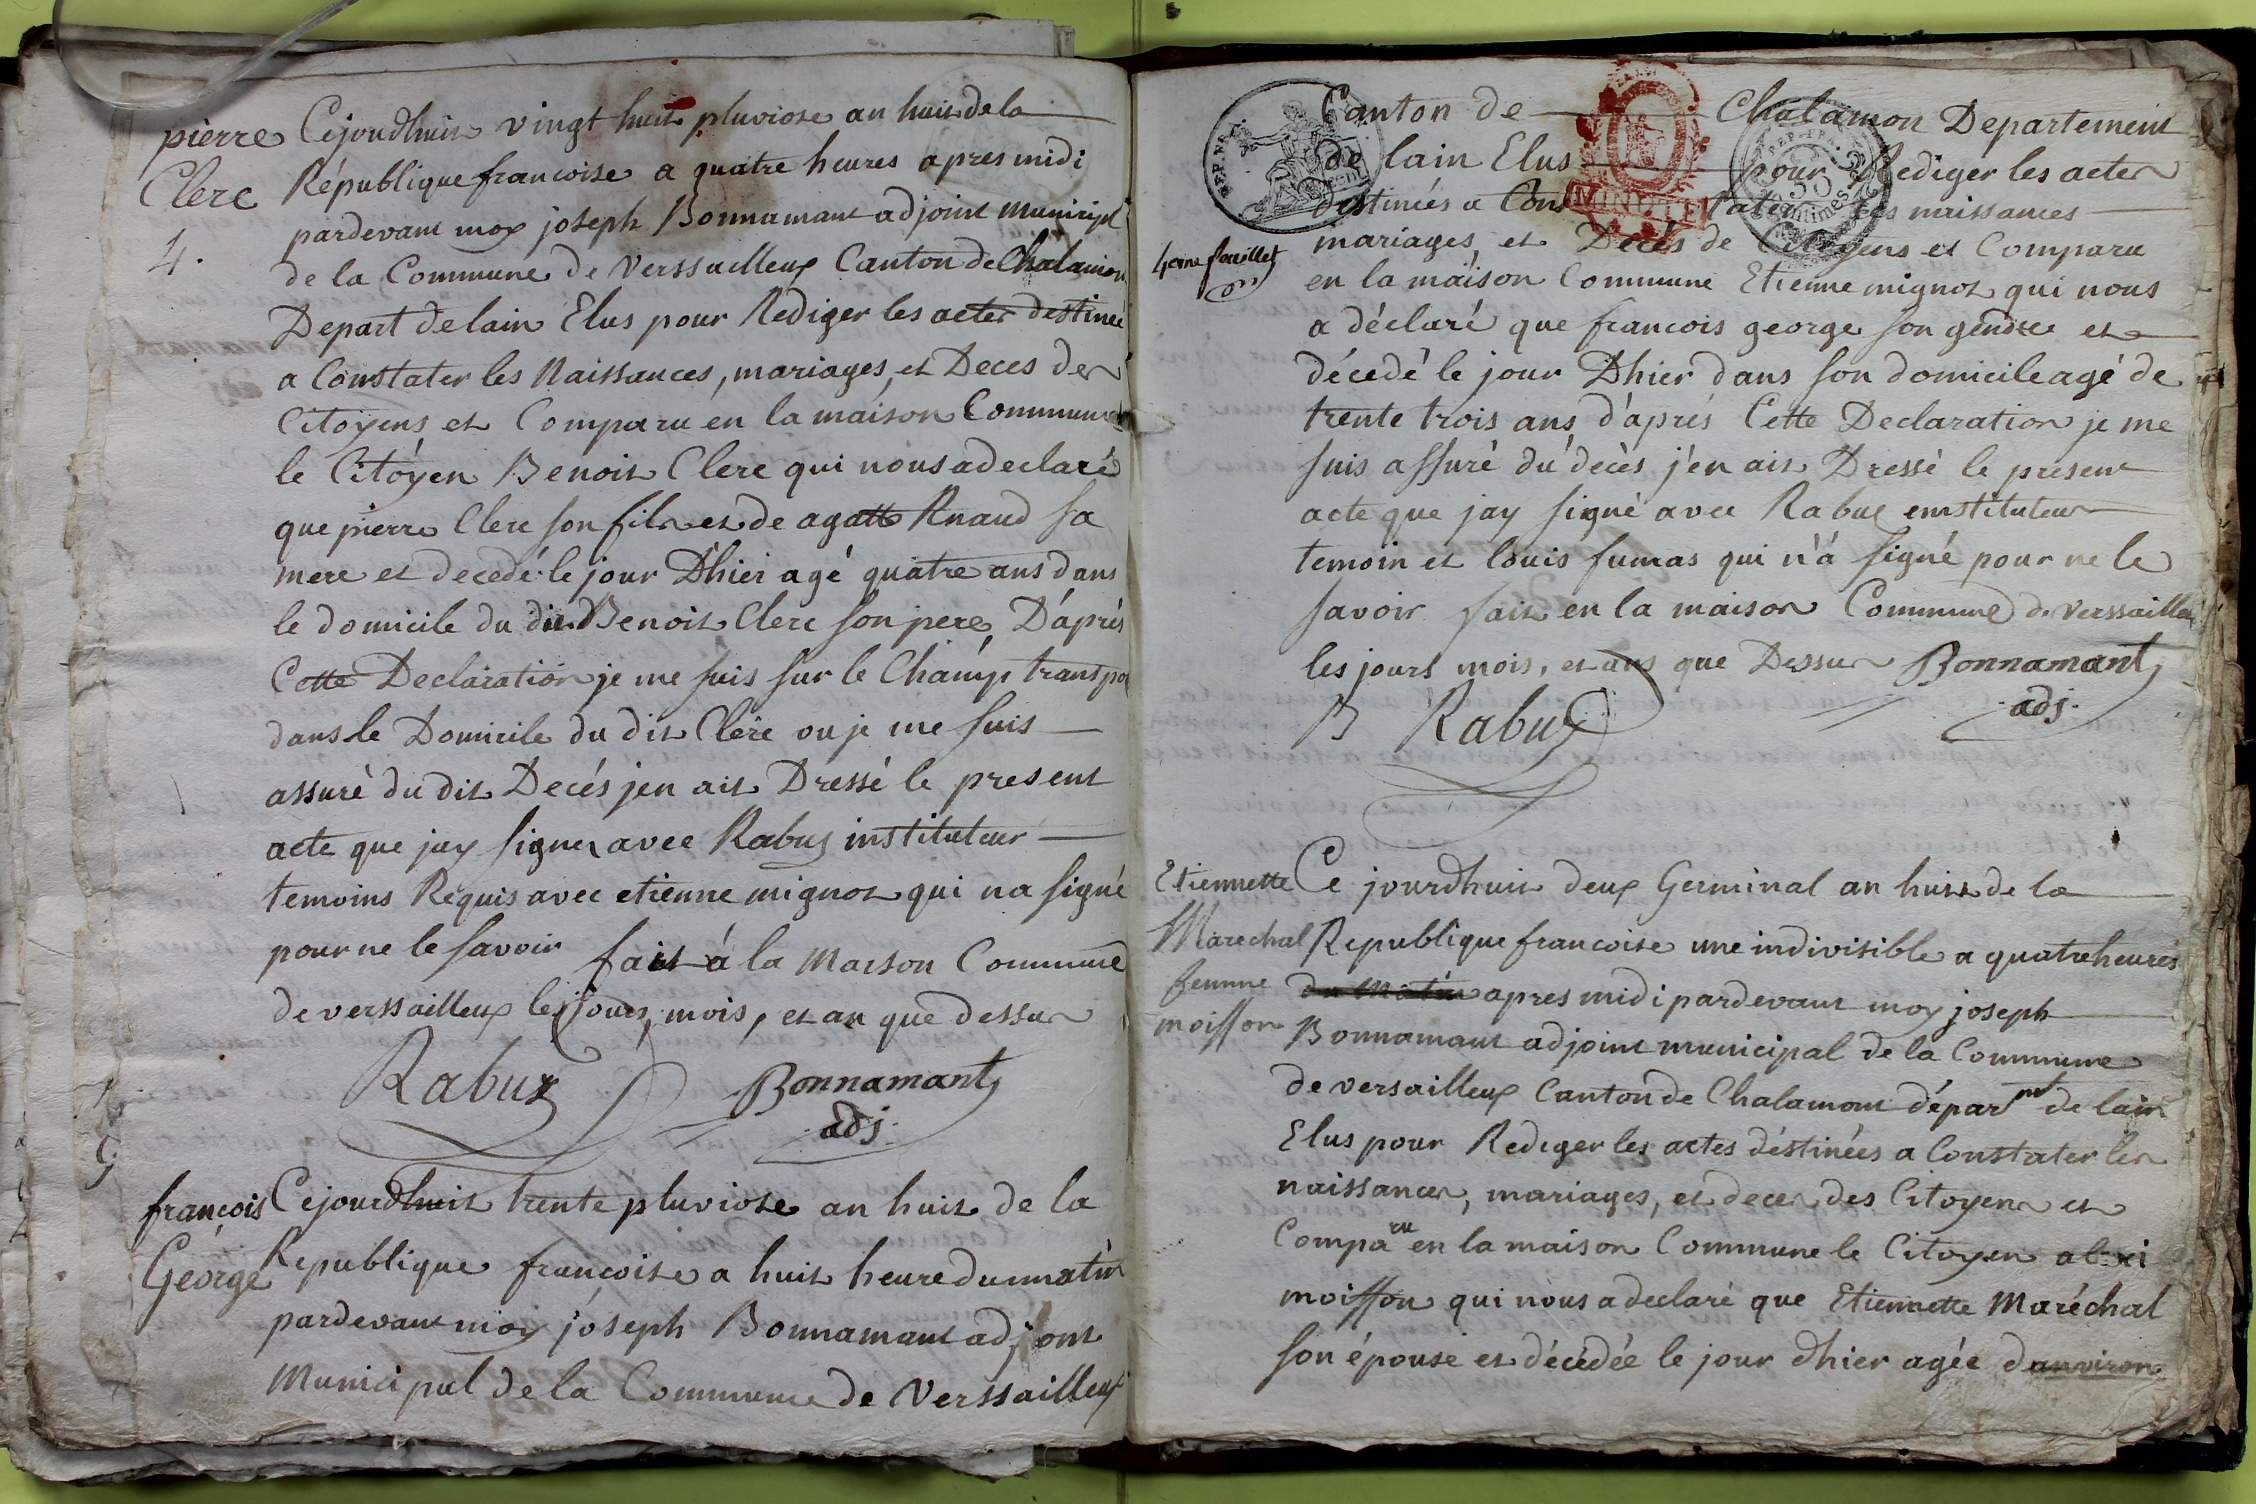 pierre
Clerc
4.
Cejourdhuit vingt huit pluviose an huit de la
République francoise a quatre heures apres midi
pardevant moy joseph Bonnamant adjoint municipl
de la Commune de Verssailleux Canton de Chalamon
Depart de lain Elus pour Rediger les actes destinee
a Constater les Naissances, mariages, et Deces des
Citoyens et Comparu en la maison Commune
le Citoyen Benoit Clerc qui nous a declaré
que pierre Clerc son fils et de agatte Anaud sa
mere et decedé le jour D'hier agé quatre ans dans
le domicile du dit Benoit Clerc son pere D'aprés
Cette Declaration je me suis sur le Champ transpo
dans le Domicile du dit Clerc ou je me suis
assuré du dit Decés jen ait Dressé le present
acte que jay signer avec Rabuy instituteur
temoins Requis avec etienne mignot qui na signé
pour ne le savoir fait á la Maison Commune
de verssailleux les jours, mois, et an que dessus
Rabuy Bonnamant
adj.
françois
George
Cejourdhuit trente pluviose an huit de la
Republique françoise a huit heure du matin
pardevant moy joseph Bonnamant adjont
Municipal de la Commune de Verssailleux
Canton de Chalamon Departement
de lain Elus pour Rediger les actes
destinées a Cons tater les naissances
mariages, et Decés de Citoyens et Comparu
4eme feuillet
en la maison Commune Etienne mignot qui nous
a déclaré que francois george son gendre et
décedé le jour Dhier dans son domicile agé de
trente trois ans d'aprés Cette Declaration je me
suis assuré du decès j'en ait Dressé le present
acte que jay signé avec Rabuy emstituteur
temoin et louis fumas qui n'á signé pour ne le
savoir fait en la maison Commune de verssailleux
les jours mois, et ans que Dessus Bonnamant
adj.
B Rabuy
MINUTE
REP. FRA.
50
centimes
Etiennette
Marechal
femme
moiffon
Ce jourdhuit deux Germinal an huit de la
Republique francoise une indivisible a quatre heures
du matin apres midi pardevant moy joseph
Bonnamant adjoint municipal de la Commune
de versailleux Canton de Chalamont dépar mt de lain
Elus pour Rediger les actes déstinées a Constater les
naissances, mariages, et deces des Citoyens et
Comparu en la maison Commune le Citoyen alexi
moiffon qui nous a declaré que Etiennette Maréchal
son épouse et décédée le jour dhier agée danviron